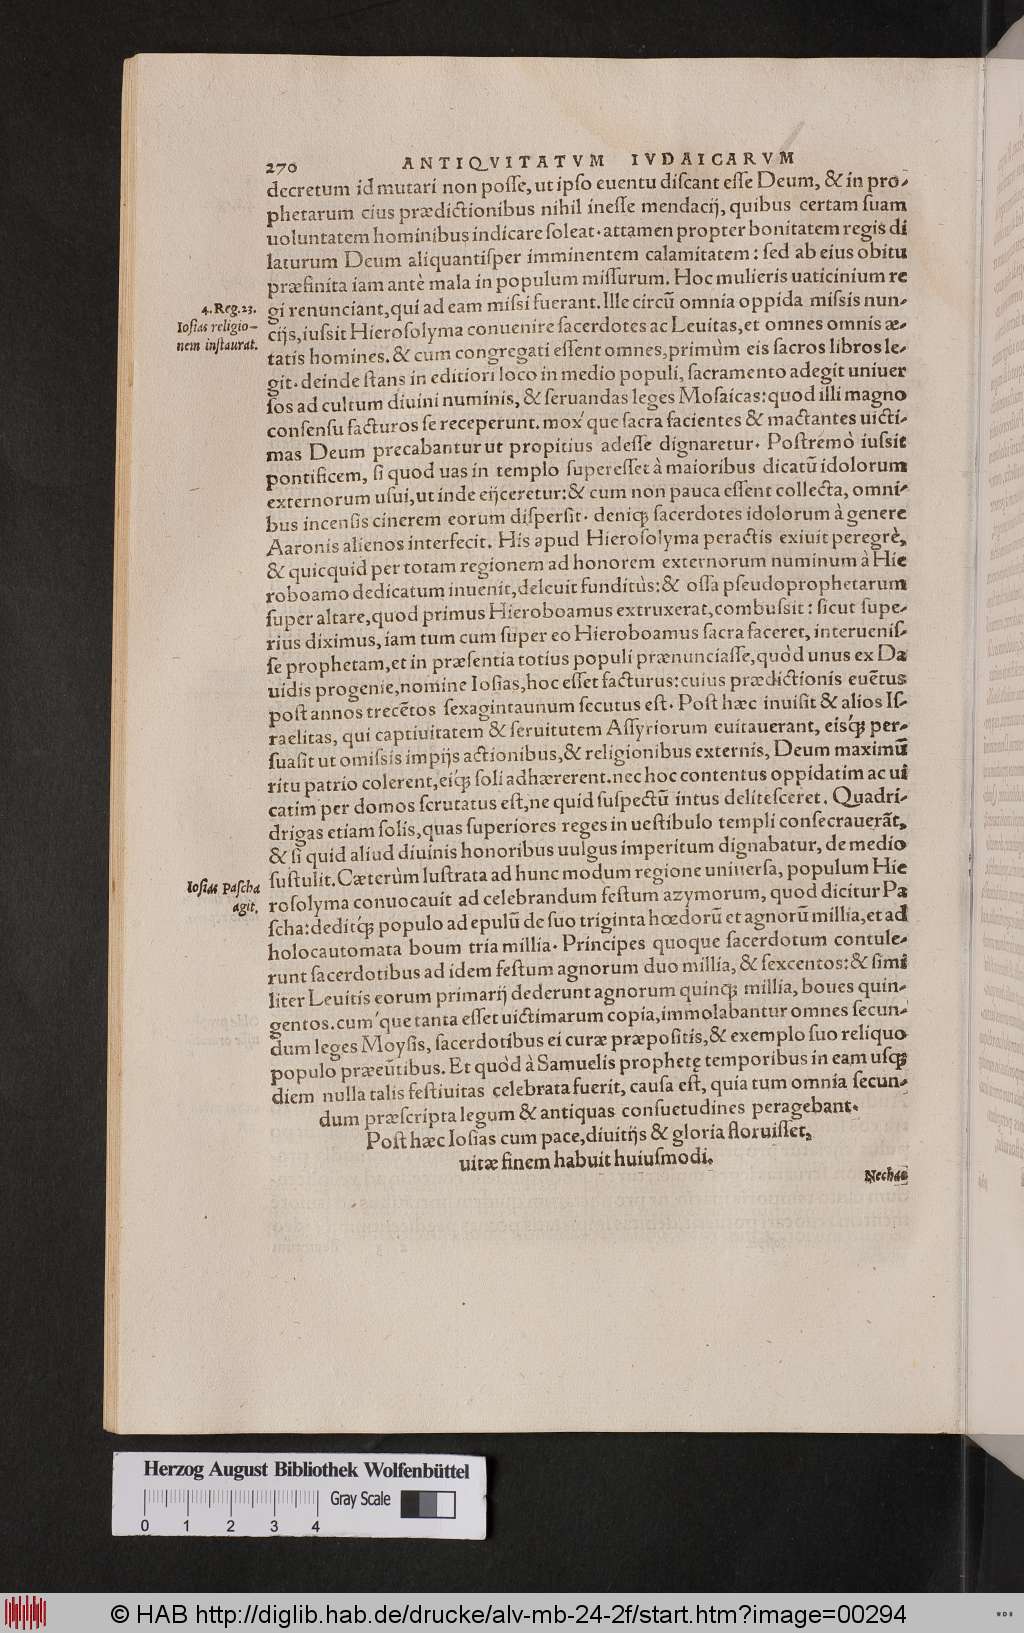 270 ANTIQVITATVM IVDAICARVM
decretum id mutari non posse, ut ipso euentu discant esse Deum, & in pro-
phetarum eius prædictionibus nihil inesse mendacij, quibus certam suam
uoluntatem hominibus indicare soleat. attamen propter bonitatem regis di
laturum Deum aliquantisper imminentem calamitatem: sed ab eius obitu
præfinita iam antè mala in populum missurum. Hoc mulieris uaticinium re
4. Reg. 23.
Iosias religio-
nem instaurat.
gi renunciant, qui ad eam missi fuerant. Ille circū omnia oppida missis nun-
cijs, iussit Hierosolyma conuenire sacerdotes ac Leuitas, et omnes omnis æ-
tatis homines. & cum congregati essent omnes, primùm eis sacros libros le-
git. deinde stans in editiori loco in medio populi, sacramento adegit uniuer
sos ad cultum diuini numinis, & seruandas leges Mosaicas: quod illi magno
consensu facturos se receperunt. mox'que sacra facientes & mactantes uicti-
mas Deum precabantur ut propitius adesse dignaretur. Postremò iussit
pontificem, si quod uas in templo superesset à maioribus dicatū idolorum
externorum usui, ut inde eijceretur: & cum non pauca essent collecta, omni-
bus incensis cinerem eorum dispersit. deniqꝫ sacerdotes idolorum à genere
Aaronis alienos interfecit. His apud Hierosolyma peractis exiuit peregrè,
& quicquid per totam regionem ad honorem externorum numinum à Hie
roboamo dedicatum inuenit, deleuit funditùs: & ossa pseudoprophetarum
super altare, quod primus Hieroboamus extruxerat, combussit: sicut supe-
rius diximus, iam tum cum super eo Hieroboamus sacra faceret, interuenis-
se prophetam, et in præsentia totius populi prænunciasse, quòd unus ex Da
uidis progenie, nomine Iosias, hoc esset facturus: cuius prædictionis euētus
post annos trecētos sexagintaunum secutus est. Post hæc inuisit & alios Is-
raelitas, qui captiuitatem & seruitutem Assyriorum euitauerant, eis'qꝫ per-
suasit ut omissis impijs actionibus, & religionibus externis, Deum maximū
ritu patrio colerent, ei'qꝫ soli adhærerent. nec hoc contentus oppidatim ac ui
catim per domos scrutatus est, ne quid suspectū intus delitesceret. Quadri-
drigas etiam solis, quas superiores reges in uestibulo templi consecrauerāt,
& si quid aliud diuinis honoribus uulgus imperitum dignabatur, de medio
sustulit. Cæterùm lustrata ad hunc modum regione uniuersa, populum Hie
Iosias Pascha
agit.
rosolyma conuocauit ad celebrandum festum azymorum, quod dicitur Pa
scha: dedit'qꝫ populo ad epulū de suo triginta hœdorū et agnorū millia, et ad
holocautomata boum tria millia. Principes quoque sacerdotum contule-
runt sacerdotibus ad idem festum agnorum duo millia, & sexcentos: & simi
liter Leuitis eorum primarij dederunt agnorum quinqꝫ millia, boues quin-
gentos. cum'que tanta esset uictimarum copia, immolabantur omnes secun-
dum leges Moysis, sacerdotibus ei curæ præpositis, & exemplo suo reliquo
populo præeūtibus. Et quòd à Samuelis prophetę temporibus in eam usqꝫ
diem nulla talis festiuitas celebrata fuerit, causa est, quia tum omnia secun-
dum præscripta legum & antiquas consuetudines peragebant.
Post hæc Iosias cum pace, diuitijs & gloria floruisset,
uitæ finem habuit huiusmodi.
Nechao
Herzog August Bibliothek Wolfenbüttel
Gray Scale
0 1 2 3 4
© HAB http://diglib.hab.de/drucke/alv-mb-24-2f/start.htm?image=00294